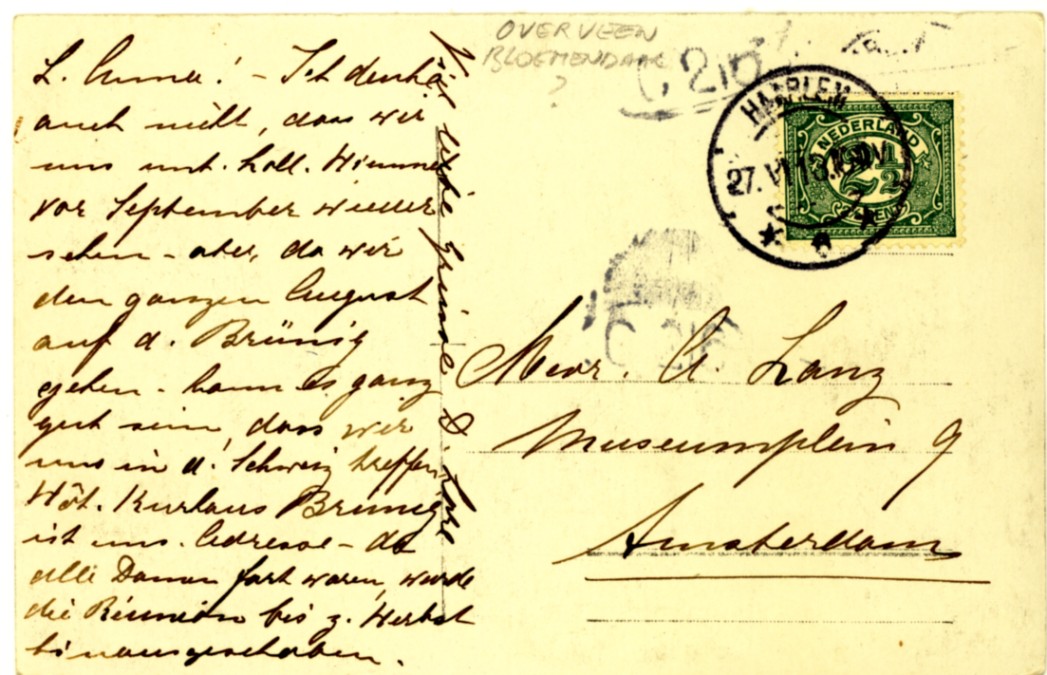 L. Anna! - Ich denke
auch nicht, dass wir
uns unt. holl. Himmel
vor September wieder
sehen - aber, da wir
den ganzen August
auf d. Brünig
gehen - kann es ganz
gut sein, dass wir
uns in d. Schweiz treffen
Hôt. Kurhaus Brünig
ist uns. Adresse - da
alle Damen fort waren, wurde
die Réunion bis z. Herbst
hinausgeschoben.
Grüsse
OVERVEEN
BLOEMENDAAL
?
HAARLEM
27. VI
NEDERLAND
2½
CENT
Mevr. A. Lanz
Museumplein 9
Amsterdam